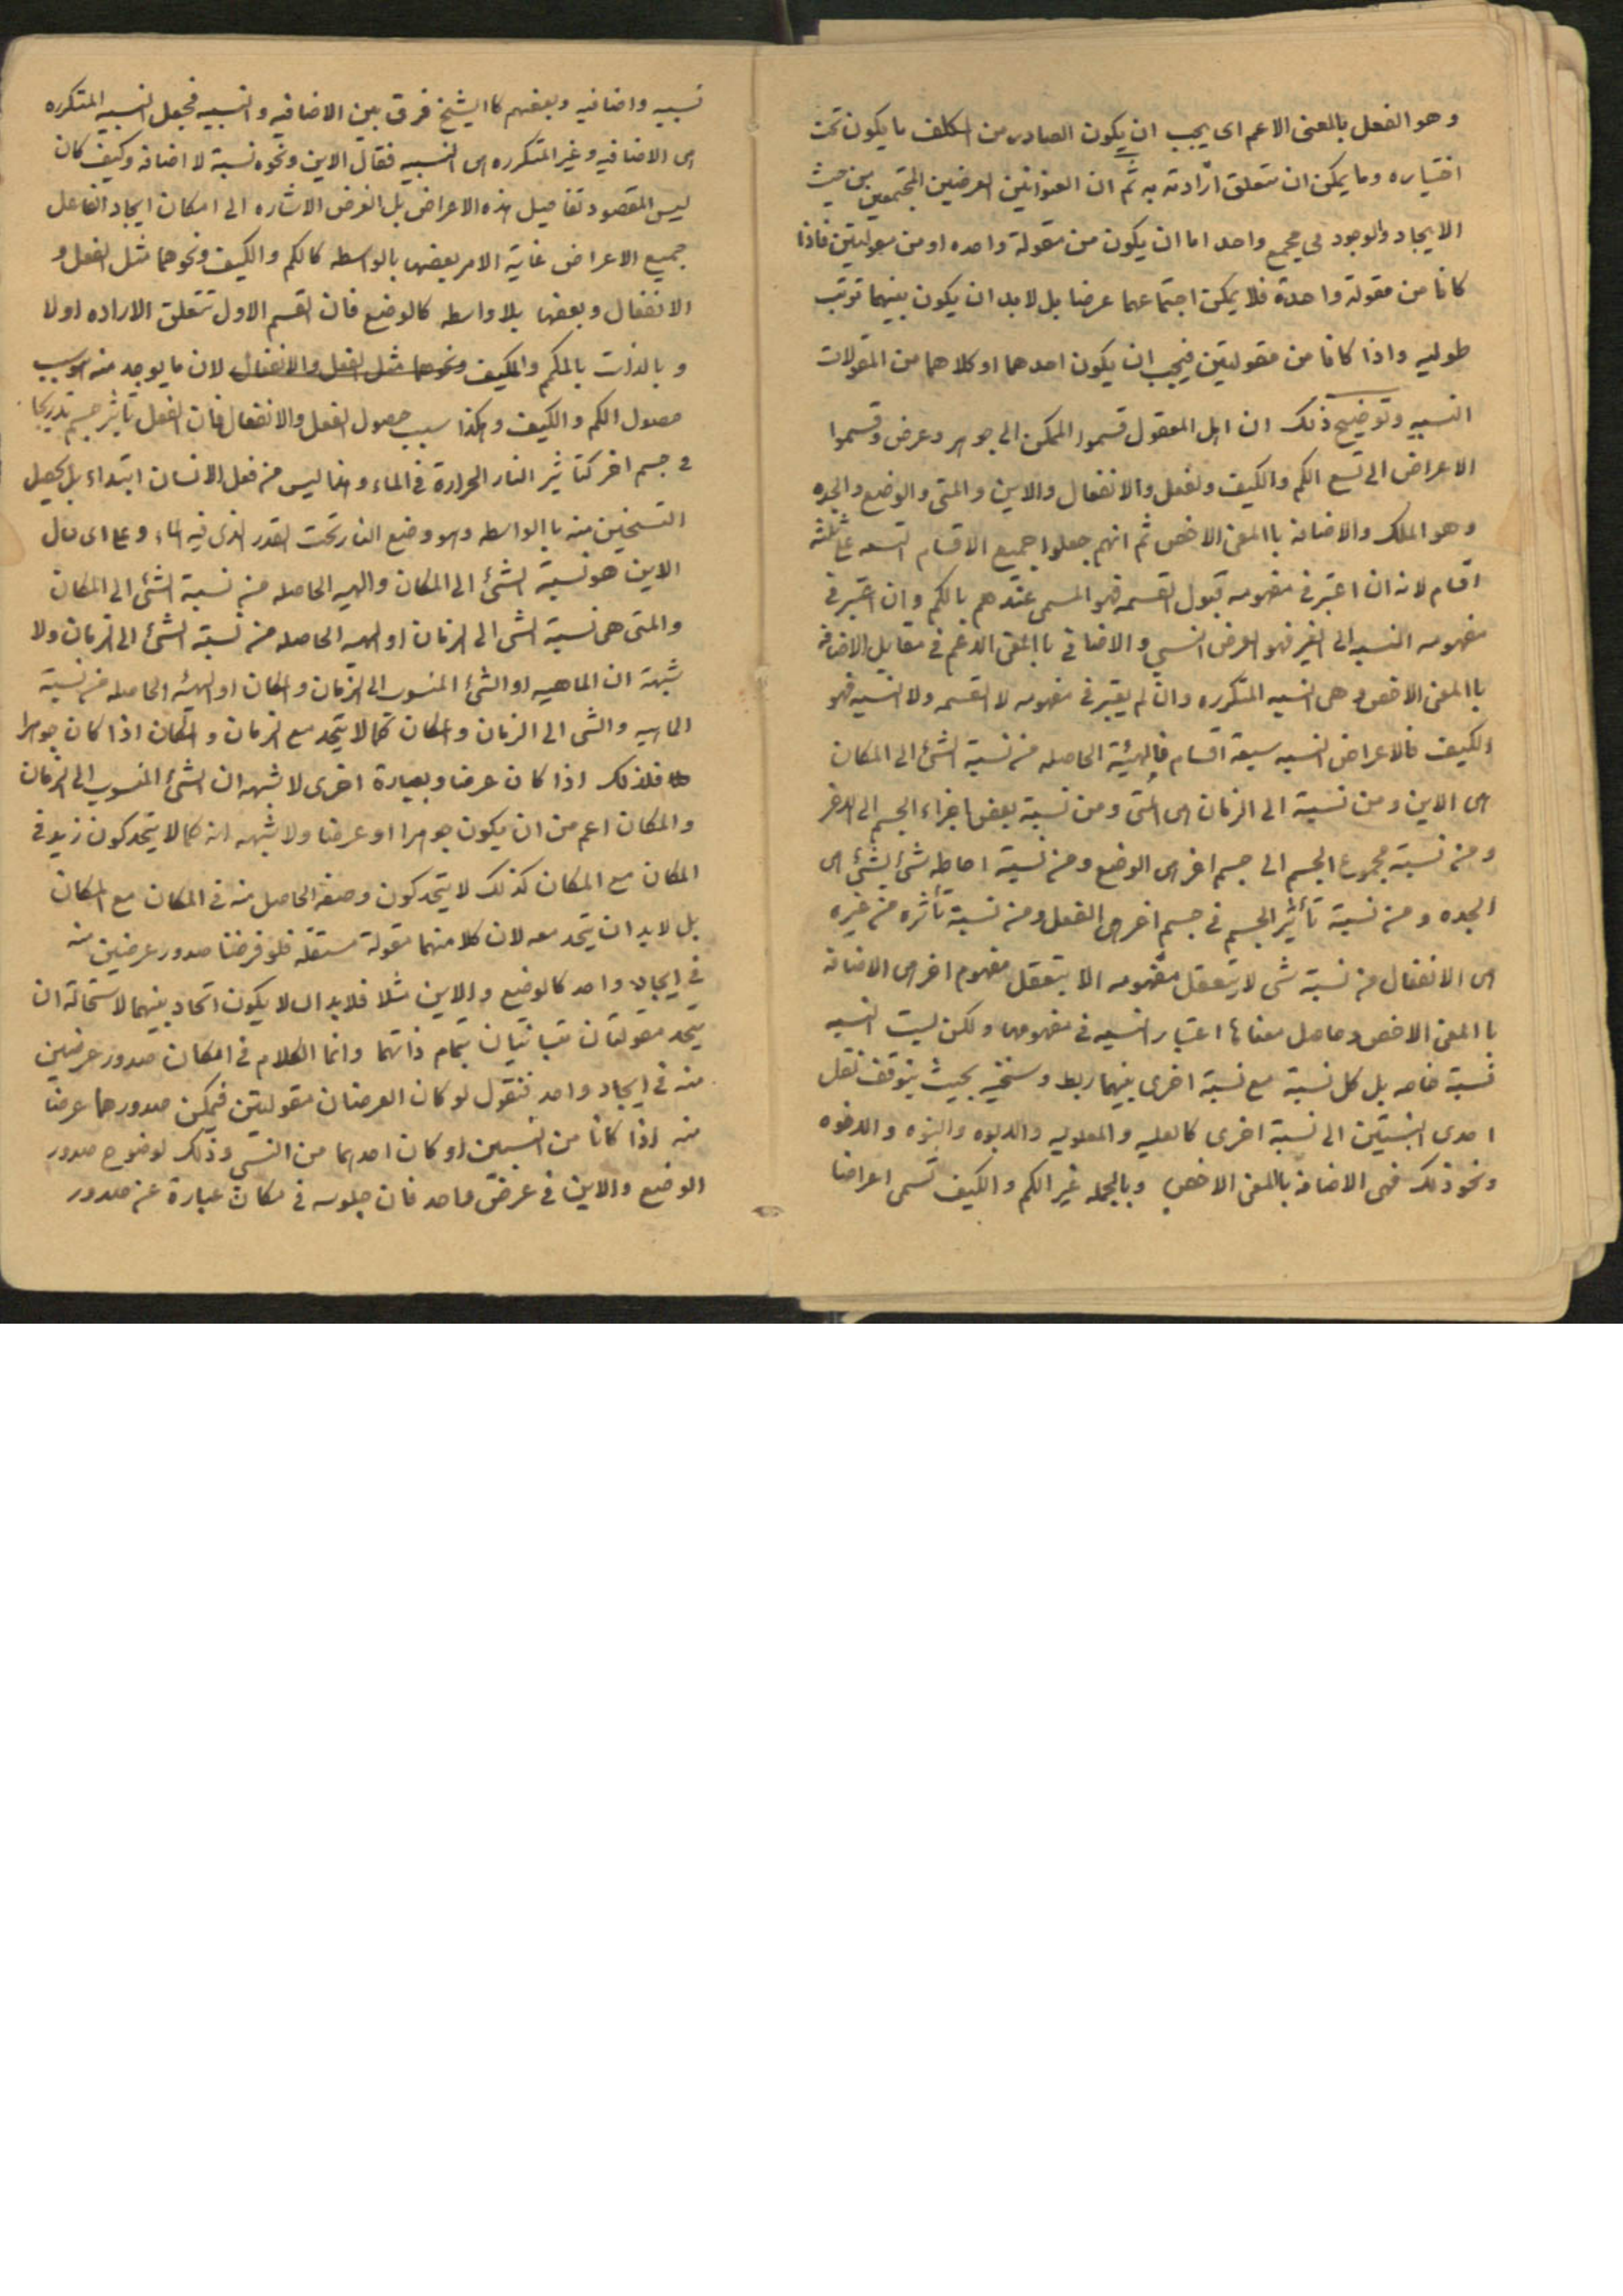 وهو الفعل بالمعنى الاعم اى يجب ان يكون الصادر من المكلف ما يكون تحت
اختياره وما يمكن ان تتعلق ارادته به ثم ان العنوانين العرضين المجتمعين من حيث
الايجاد والوجود فى مجمع واحد اما ان يكون من مقولة واحده او من مقولتين فاذا
كانا من مقولة واحدة فلا يمكن اجتماعهما عرضا بل لا بد ان يكون بينهما ترتب
طوليه واذا كانا من مقولتين فيجب ان يكون احدهما او كلاهما من المقولات
النسبيه وتوضيح ذلك ان اهل المعقول قسموا الممكن الى جوهر وعرض وقسموا
الاعراض الى تسع الكم والكيف والفعل والانفعال والاين والمتى والوضع والجده
وهو الملك والاضافة باالمعنى الاخص ثم انهم جعلوا جميع الاقسام التسعه على ثلثة
اقسام لانه ان اعتبر فى مفهومه قبول القسمه فهو المسمى عندهم بالكم وان اعتبر فى
مفهومه النسبه الى الغير فهو العرض النسبي والاضافى باالمعنى الاعم فى مقابل الاضافة
باالمعنى الاخص وهى النسبه المتكرره وان لم يعتبر فى مفهومه لا القسمه ولا النسبه فهو
الكيف فالاعراض النسبيه سبعة اقسام فالهيئة الحاصله من نسبة الشئ الى المكان
هى الاين ومن نسبة الى الزمان هى المتى ومن نسبة بعض اجزاء الجسم الى الاخر
ومن نسبة مجموع الجسم الى جسم اخر هى الوضع ومن نسبة احاطه شئ بشئ هى
الجده ومن نسبة تأثير الجسم فى جسم اخر هى الفعل ومن نسبة تأثره من غيره
هى الانفعال من نسبة شى لا يتعقل مفهومه الا بتعقل مفهوم اخر هى الاضافة
باالمعنى الاخص وحاصل معناها اعتبار النسبه فى مفهومها ولكن ليست النسبه
نسبة خاصه بل كل نسبة مع نسبة اخرى بينهما ربط وسنخيه بحيث يتوقف تعقل
احدى النسبتين الى نسبة اخرى كالعليه والمعلوليه والابوه والبنوه والاخوه
ونحو ذلك فهى الاضافة بالمعنى الاخص وبالجمله غير الكم والكيف تسمى اعراضا
نسبيه واضافيه وبعضهم كاالشيخ فرق بين الاضافيه والنسبيه فجعل النسبيه المتكرره
هى الاضافيه وغير المتكرره هى النسبيه فقال الاين ونحوه نسبة لا اضافة وكيف كان
ليس المقصود تفاصيل هذه الاعراض بل الغرض الاشاره الى امكان ايجاد الفاعل
جميع الاعراض غاية الامر بعضها بالواسطه كالكم والكيف ونحوهما مثل الفعل و
الانفعال وبعضها بلا واسطه كالوضع فان القسم الاول تتعلق الاراده اولا
وبالذات بالكم والكيف ونحوهما مثل الفعل والانفعال لان ما يوجد منه هو سبب
حصول الكم والكيف وهكذا سبب حصول الفعل والانفعال فان الفعل تأثير جسم تدريجا
فى جسم اخر كتأثير النار الحرارة فى الماء وهذا ليس من فعل الانسان ابتداء بل يحصل
التسخين منه باالواسطه وهو وضع النار تحت القدر الذى فيه الماء وعلى اى حال
الاين هو نسبة الشئ الى المكان والهيه الحاصله من نسبة الشئ الى المكان
والمتى هى نسبة الشى الى الزمان او الهيه الحاصله من نسبة الشئ الى الزمان ولا
شبهة ان الماهيه او الشئ المنسوب الى الزمان والمكان او الهيئه الحاصله من نسبة
الماهيه والشى الى الزمان والمكان كما لا يتحد مع الزمان والمكان اذا كان جوهرا
فلذلك اذا كان عرضا وبعبارة اخرى لا شبهه ان الشئ المنسوب الى الزمان
والمكان اعم من ان يكون جوهرا او عرضا ولا شبهه انه كما لا يتحد كون زيد فى
المكان مع المكان كذلك لا يتحد كون وصفه الحاصل منه فى المكان مع المكان
بل لا بد ان يتحد معه لان كلا منهما مقولة مستقله فلو فرضنا صدور عرضين منه
فى ايجاد واحد كالوضع والاين مثلا فلا بد ان لا يكون اتحاد بينهما لاستحالة ان
يتحد مقولتان متباينتان بتمام ذاتهما وانما الكلام فى امكان صدور عرضين
منه فى ايجاد واحد فنقول لو كان العرضان مقولتين فيمكن صدورهما عرضا
منه اذا كانا من النسبيين او كان احدهما من النسبى وذلك لوضوح صدور
الوضع والاين فى عرض واحد فان جلوسه فى مكان عبارة عن صدور